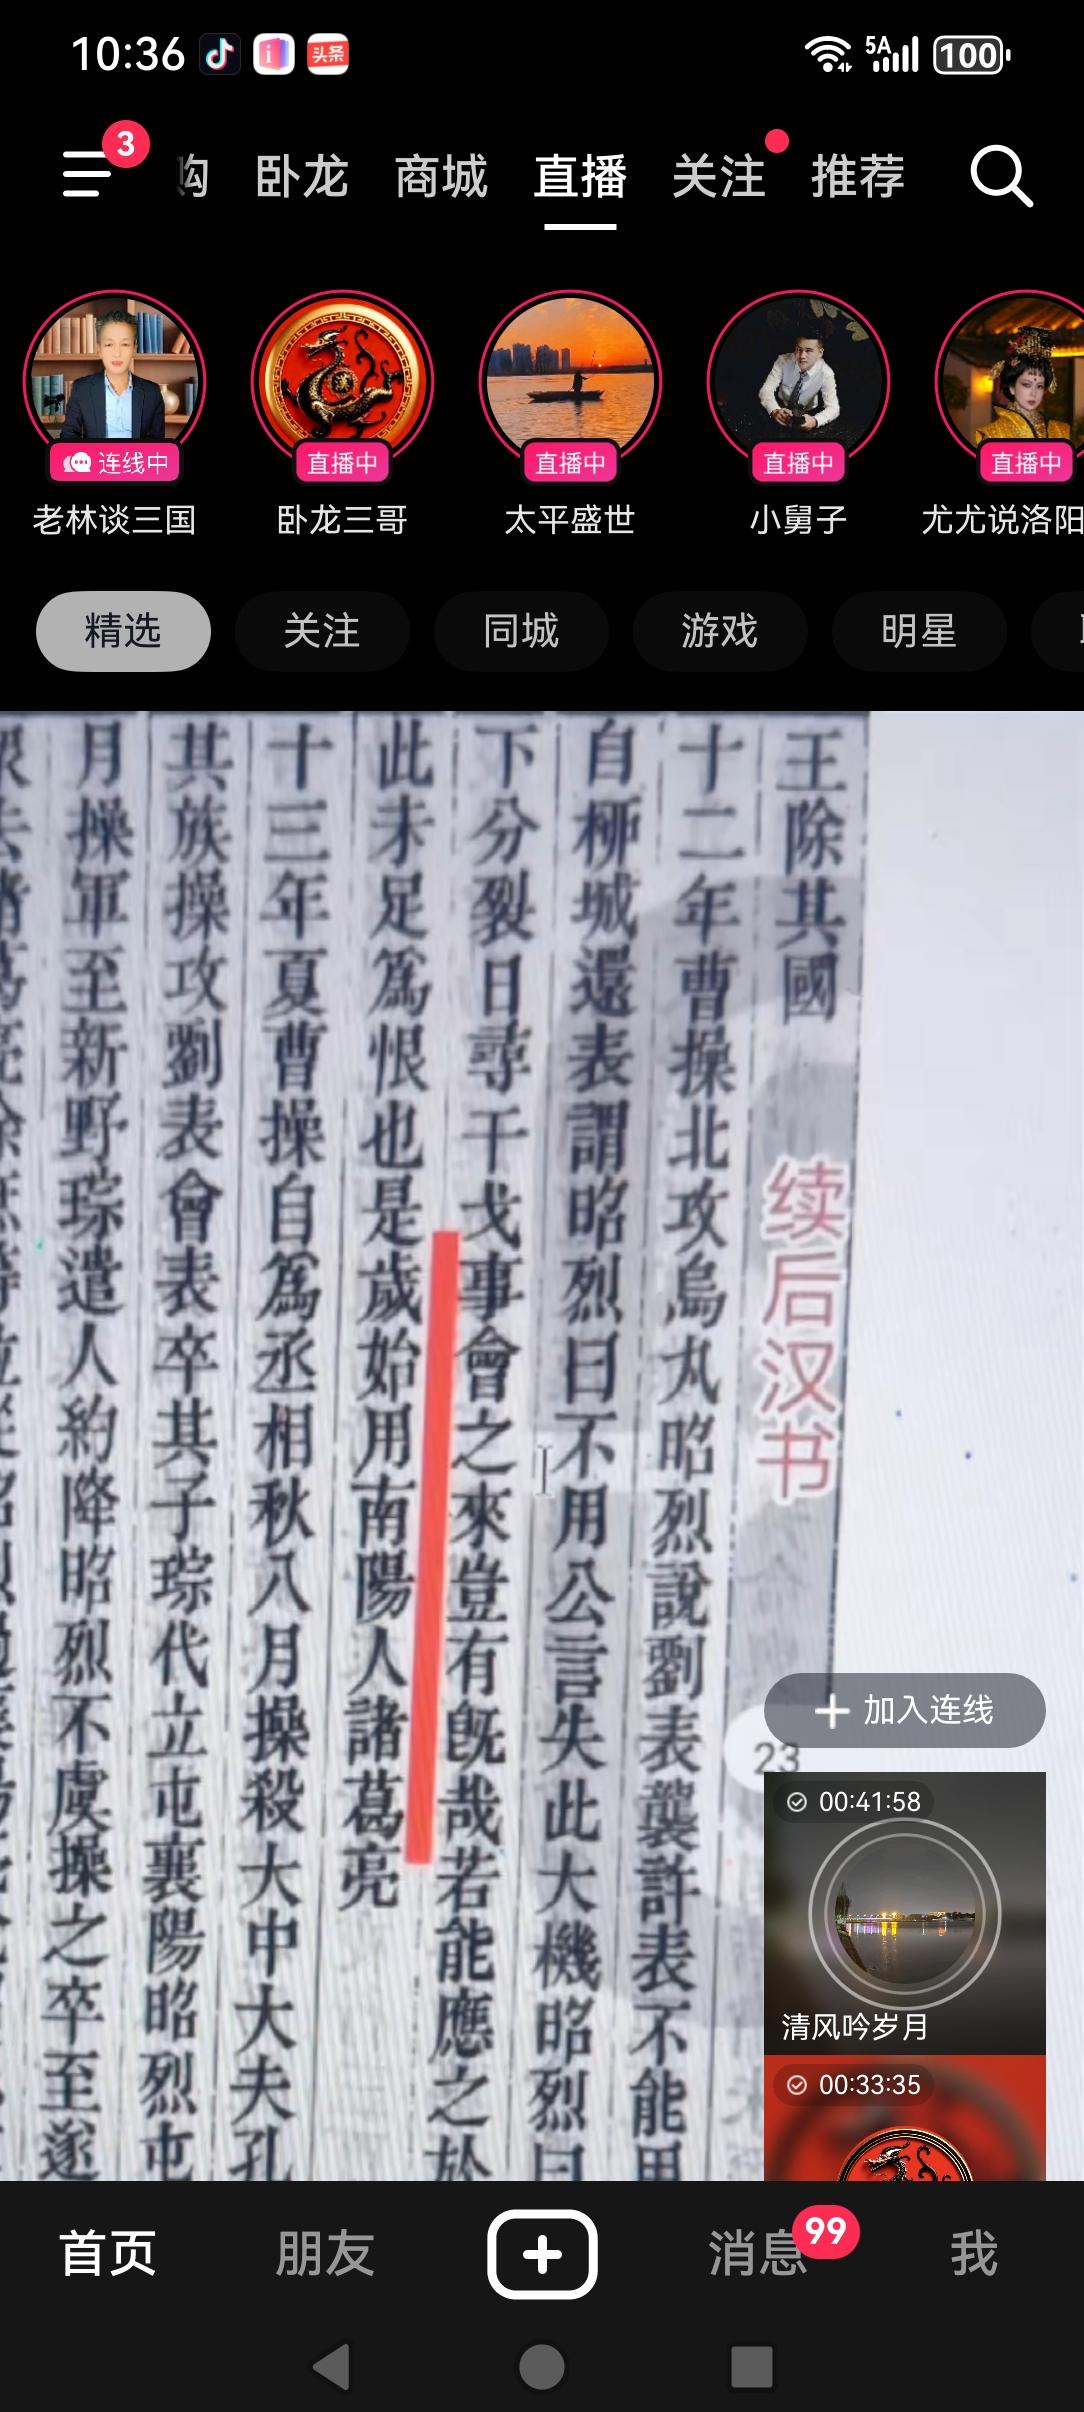 10:36
头条
5A
100
3
购 卧龙 商城 直播 关注 推荐
连线中 直播中 直播中 直播中 直播中
老林谈三国 卧龙三哥 太平盛世 小舅子 尤尤说洛阳
精选 关注 同城 游戏 明星
王除其國
十二年曹操北攻烏丸昭烈說劉表襲許表不能用
自柳城還表謂昭烈曰不用公言失此大機昭烈曰
下分裂日尋干戈事會之來豈有旣哉若能應之於
此未足為恨也是歲始用南陽人諸葛亮
十三年夏曹操自為丞相秋八月操殺大中大夫孔
其族操攻劉表會表卒其子琮代立屯襄陽昭烈屯
月操軍至新野琮遣人約降昭烈不虞操之卒至遂
续后汉书
23
加入连线
00:41:58
清风吟岁月
00:33:35
首页 朋友 消息 99 我